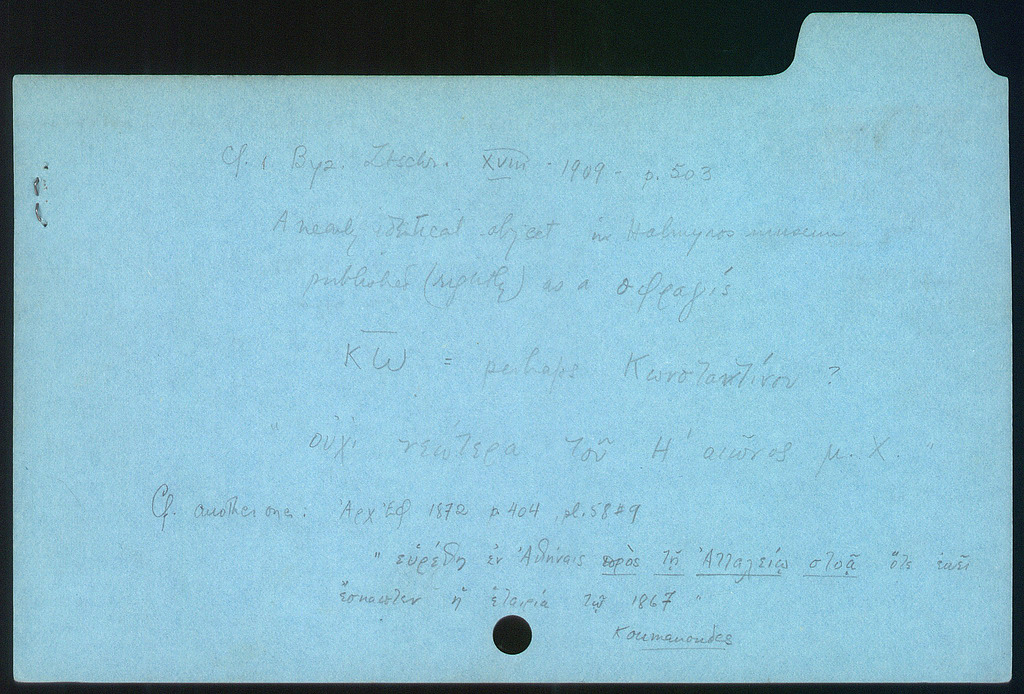 Cf. : Byz. Ztschr. XVIII - 1909 - p. 503
A nearly identical object in Halmyros museum
published (rightly) as a σφραγίς
ΚW̅ = perhaps Κωνσταντίνου ?
" οὐχὶ νεώτερα τοῦ Η' αἰῶνος μ. Χ. "
Cf. another one: Ἀρχ Ἐφ 1872 p 404 pl. 58 # 9
" εὑρέθη ἐν Ἀθήναις πρὸς τῇ Ἀτταλείῳ στοᾷ ὅτε ἐκεῖ
ἔσκαπτεν ἡ ἑταιρία τῷ 1867 "
Koumanoudes